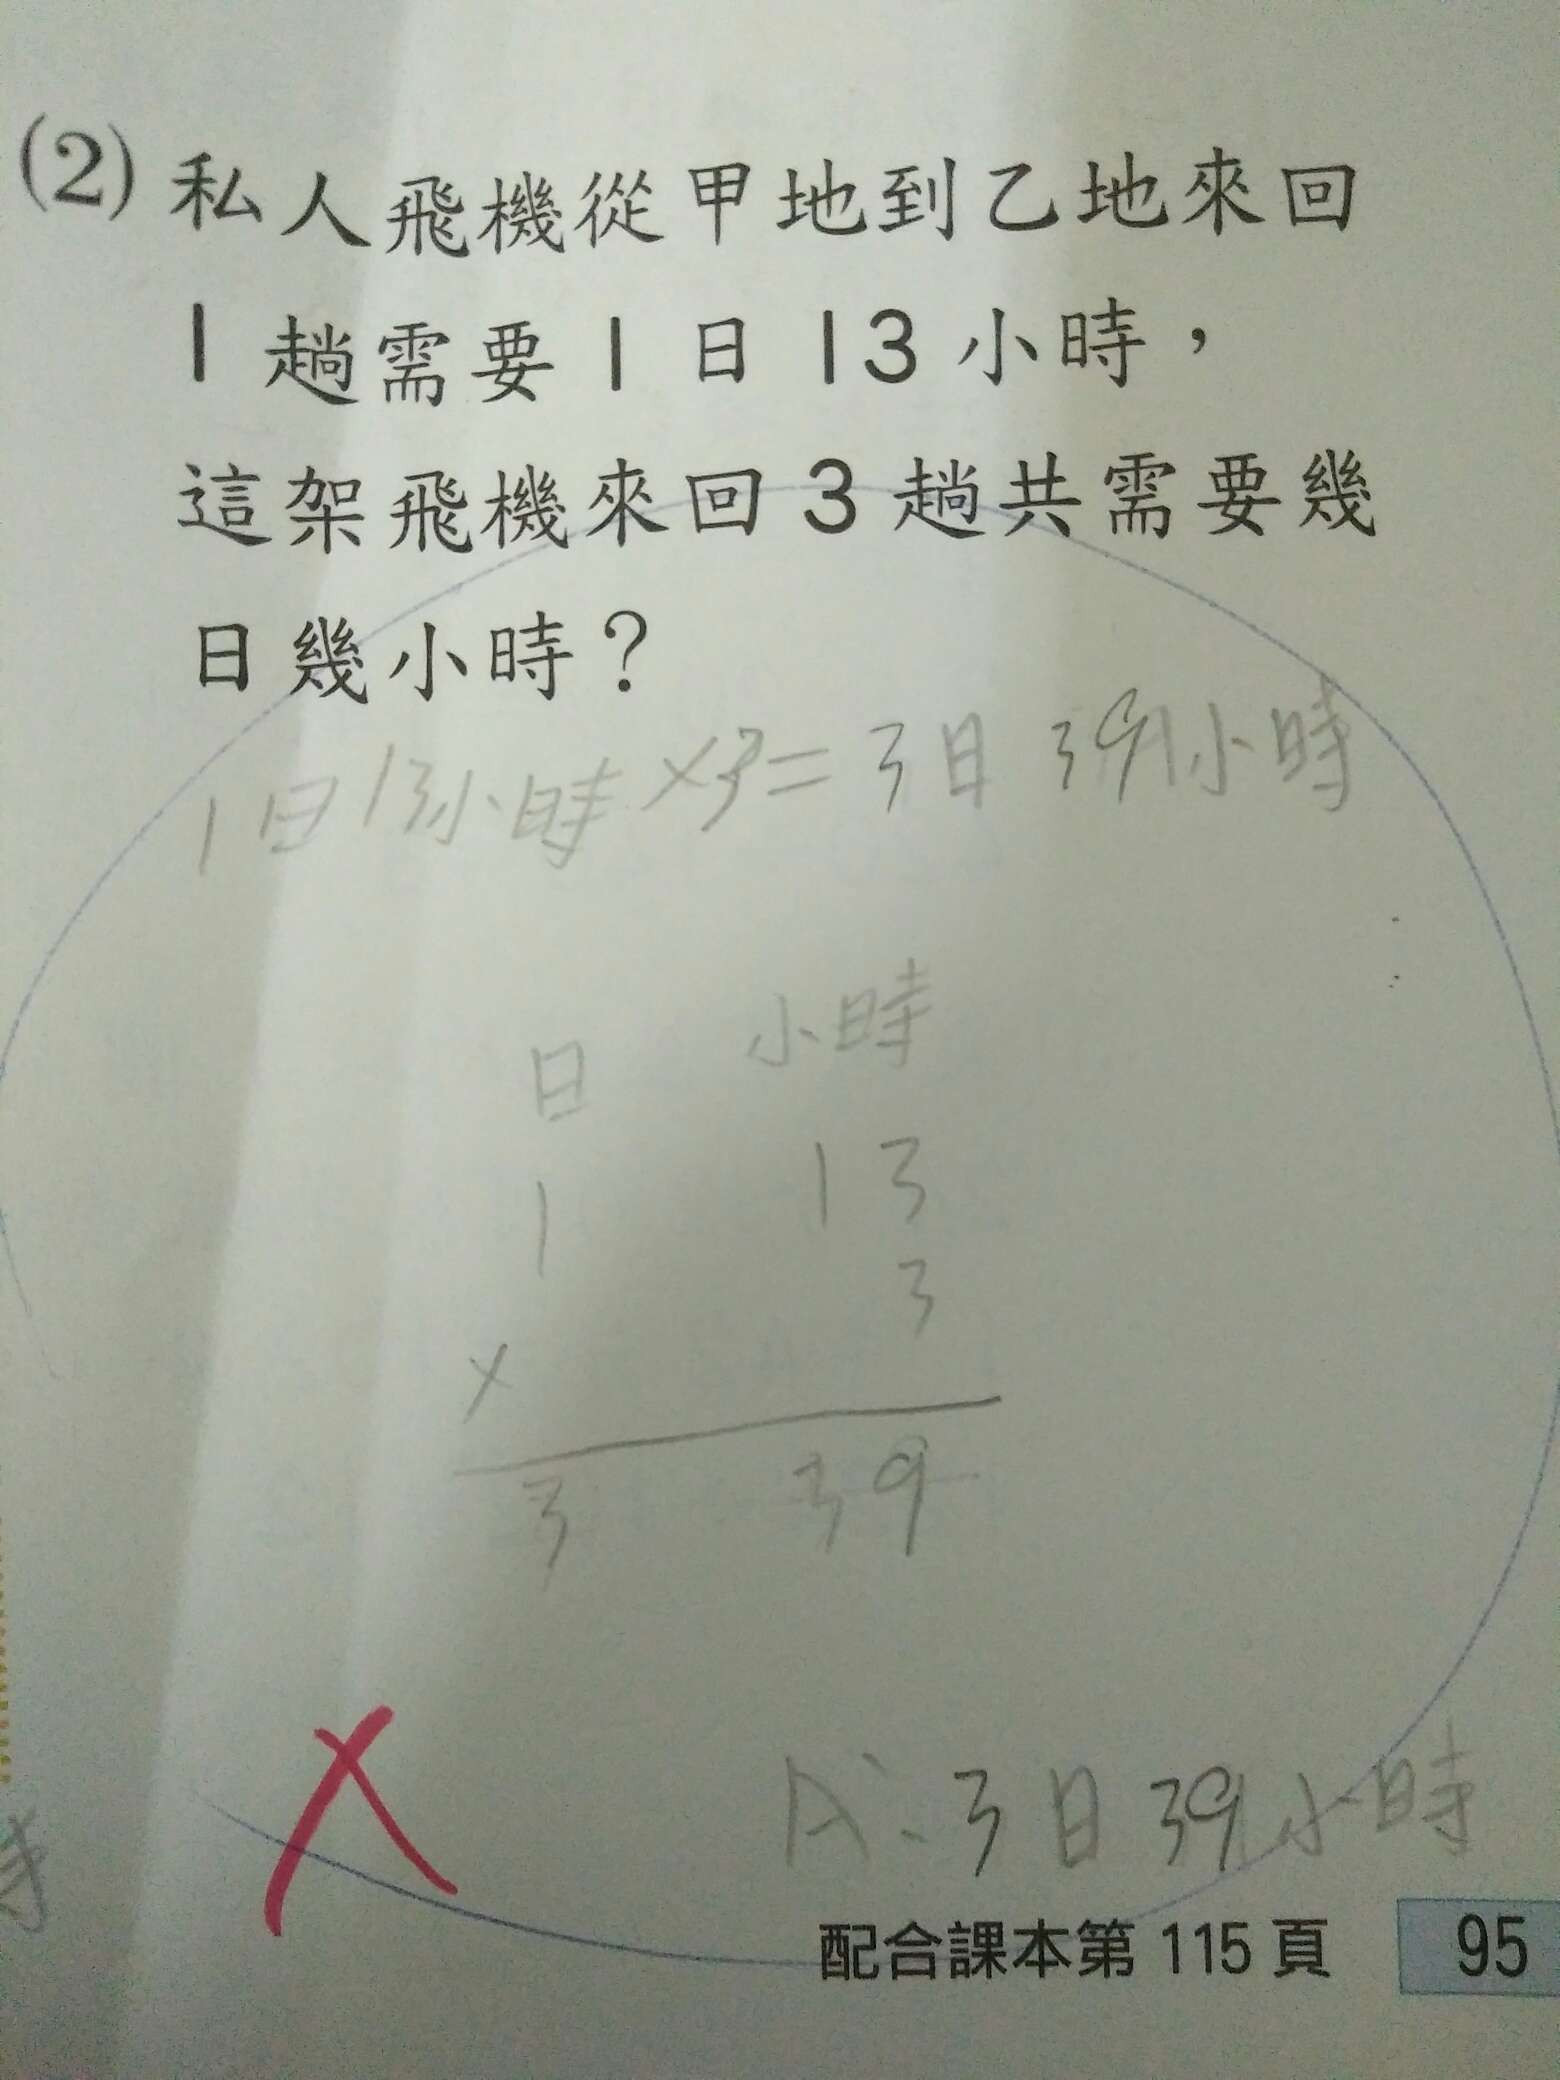 (2) 私人飛機從甲地到乙地來回
1趟需要1日13小時，
這架飛機來回3趟共需要幾
日幾小時？
1日13小時×3=3日39小時
日 小時
1 13
× 3
3 39
A：3日39小時
配合課本第115頁 95